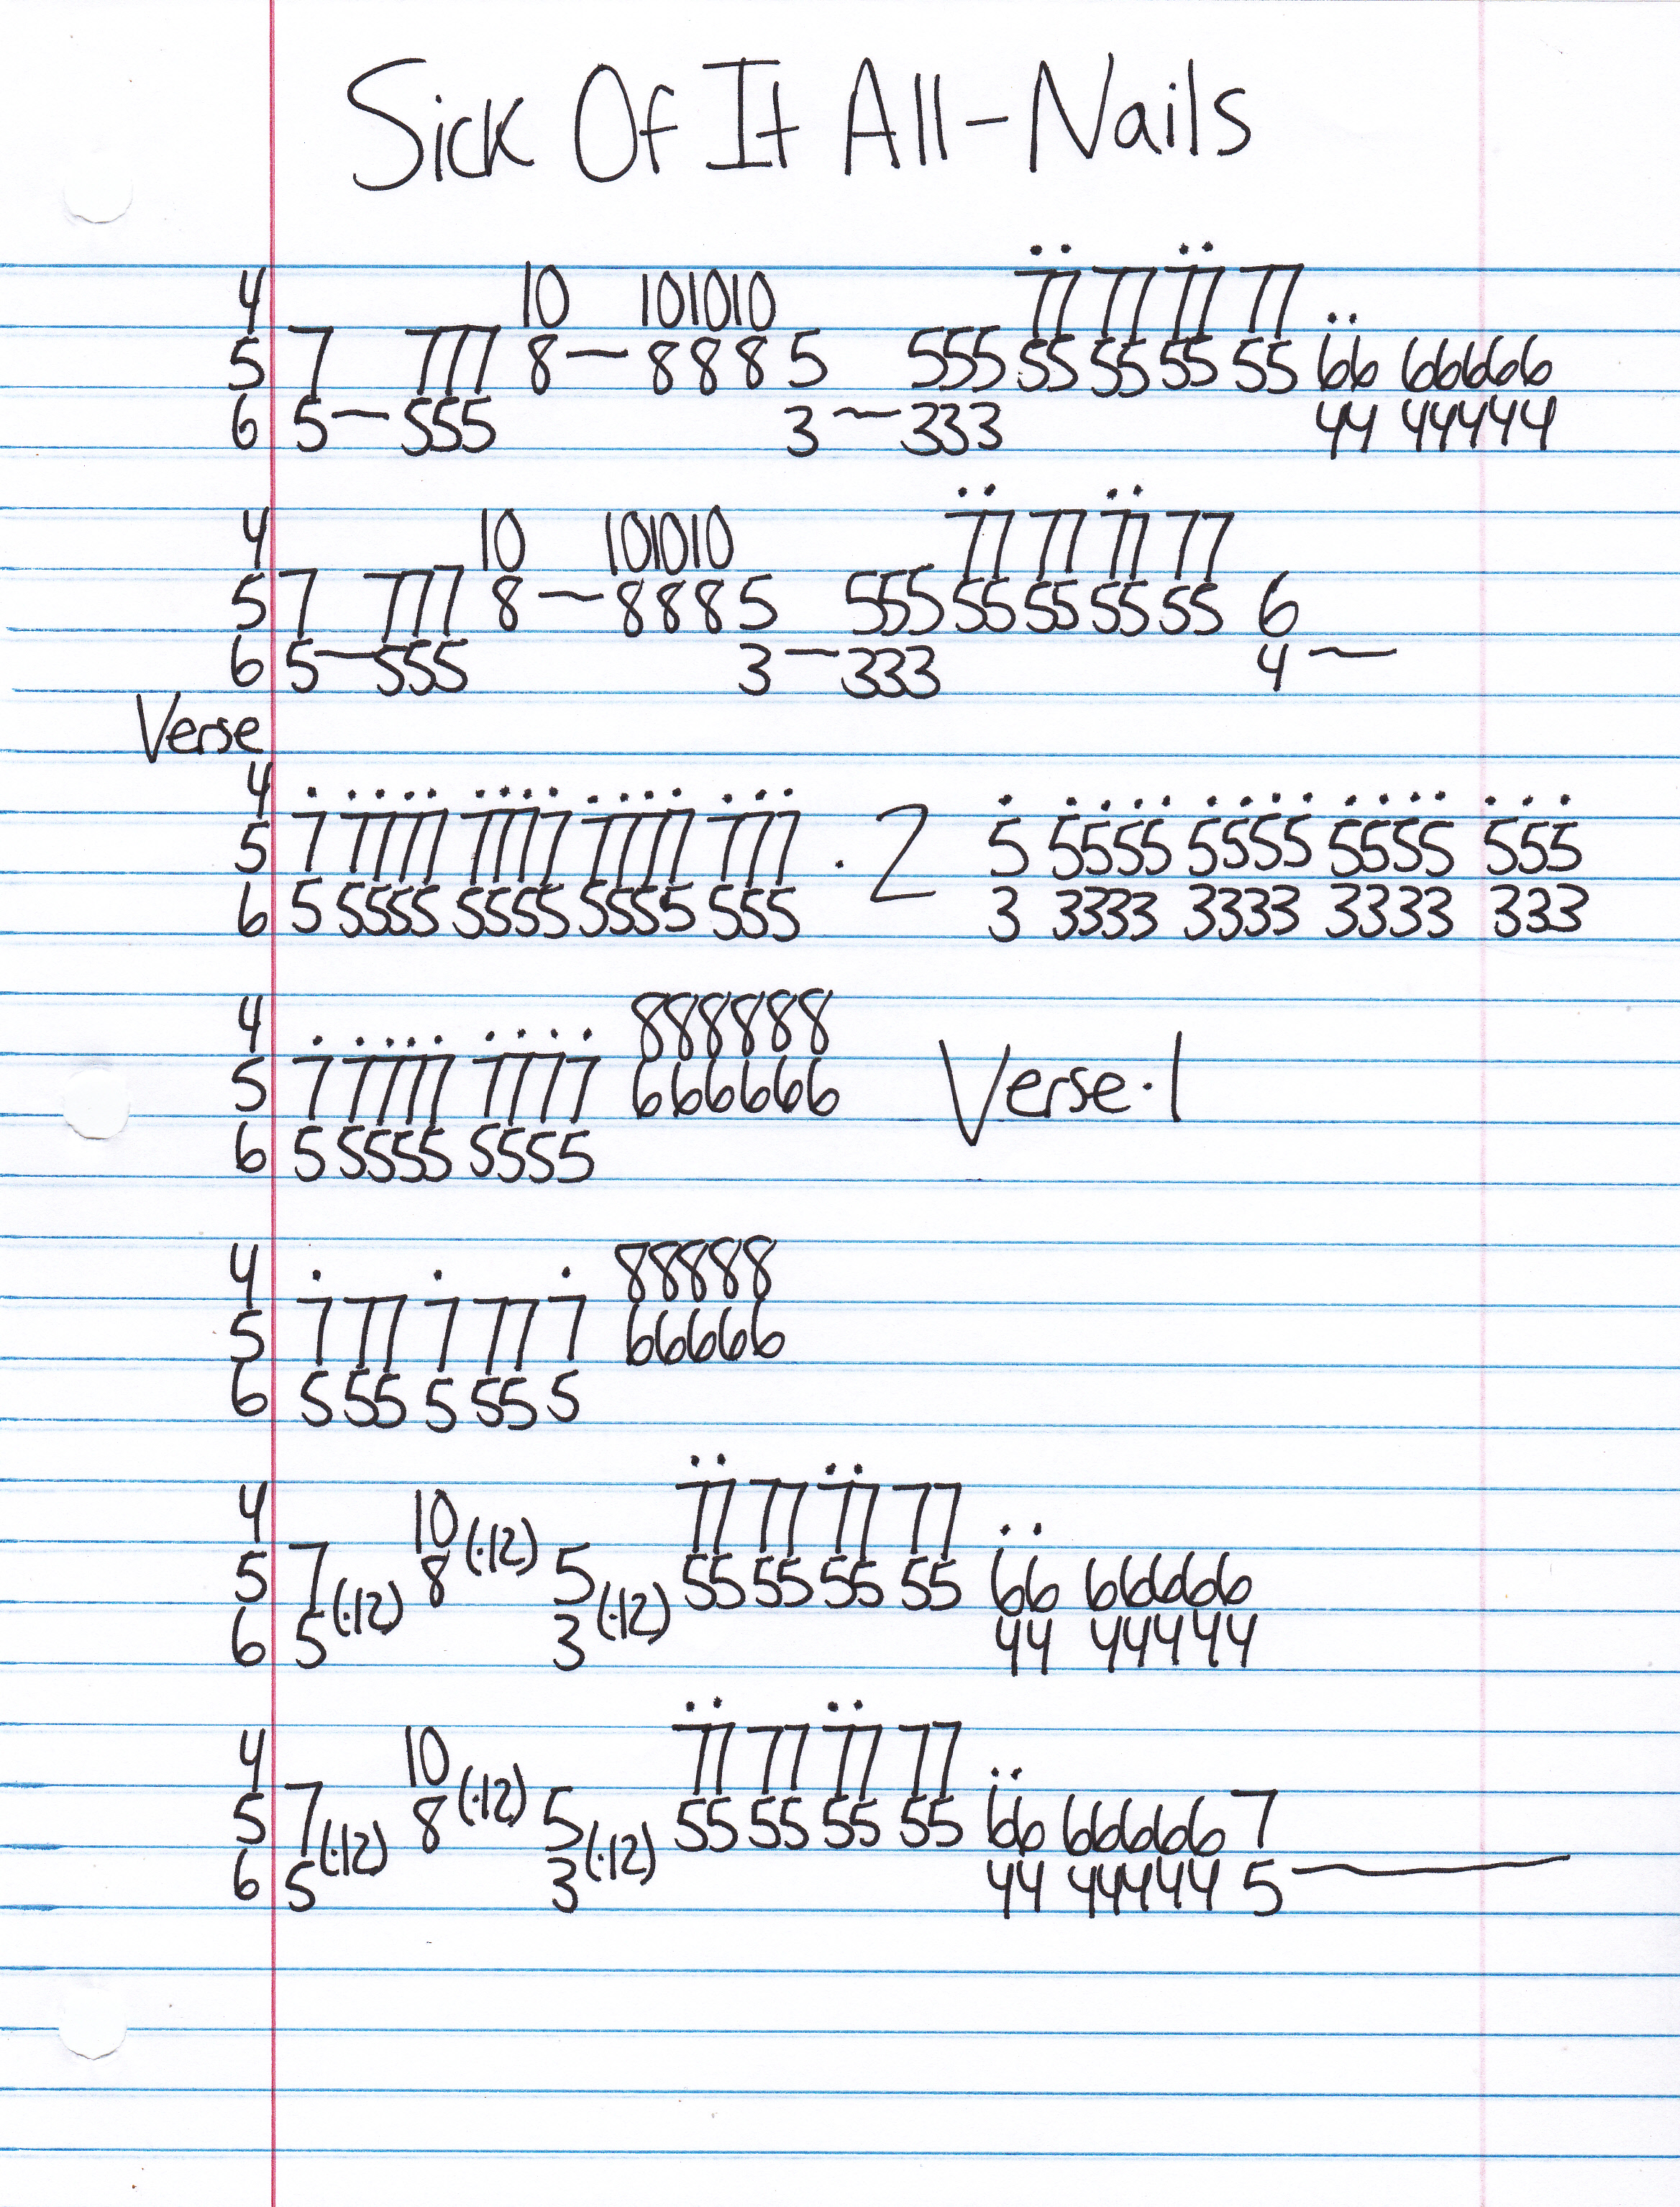 Sick Of It All-Nails
4 10 101010 77 77 77 77
5 7 777 8— 8 8 8 5 555 55 55 55 55 66 66666
6 5— 555 3 — 333 44 44444
4 10 101010 77 77 77 77
5 7 777 8— 8 8 8 5 555 55 55 55 55 6
6 5— 555 3 — 333 4 —
Verse
4
5 7 7777 7777 7777 777 · 2 5 5555 5555 5555 555
6 5 5555 5555 5555 555 3 3333 3333 3333 333
4 888888
5 7 7777 7777 666666 Verse·1
6 5 5555 5555
4 88888
5 7 77 7 77 7 66666
6 5 55 5 55 5
4 10 (·12) 77 77 77 77
5 7 (·12) 8 5 (·12) 55 55 55 55 66 66666
6 5 3 44 44444
4 10 (·12) 77 77 77 77
5 7 (·12) 8 5 (·12) 55 55 55 55 66 66666 7
6 5 3 44 44444 5 —